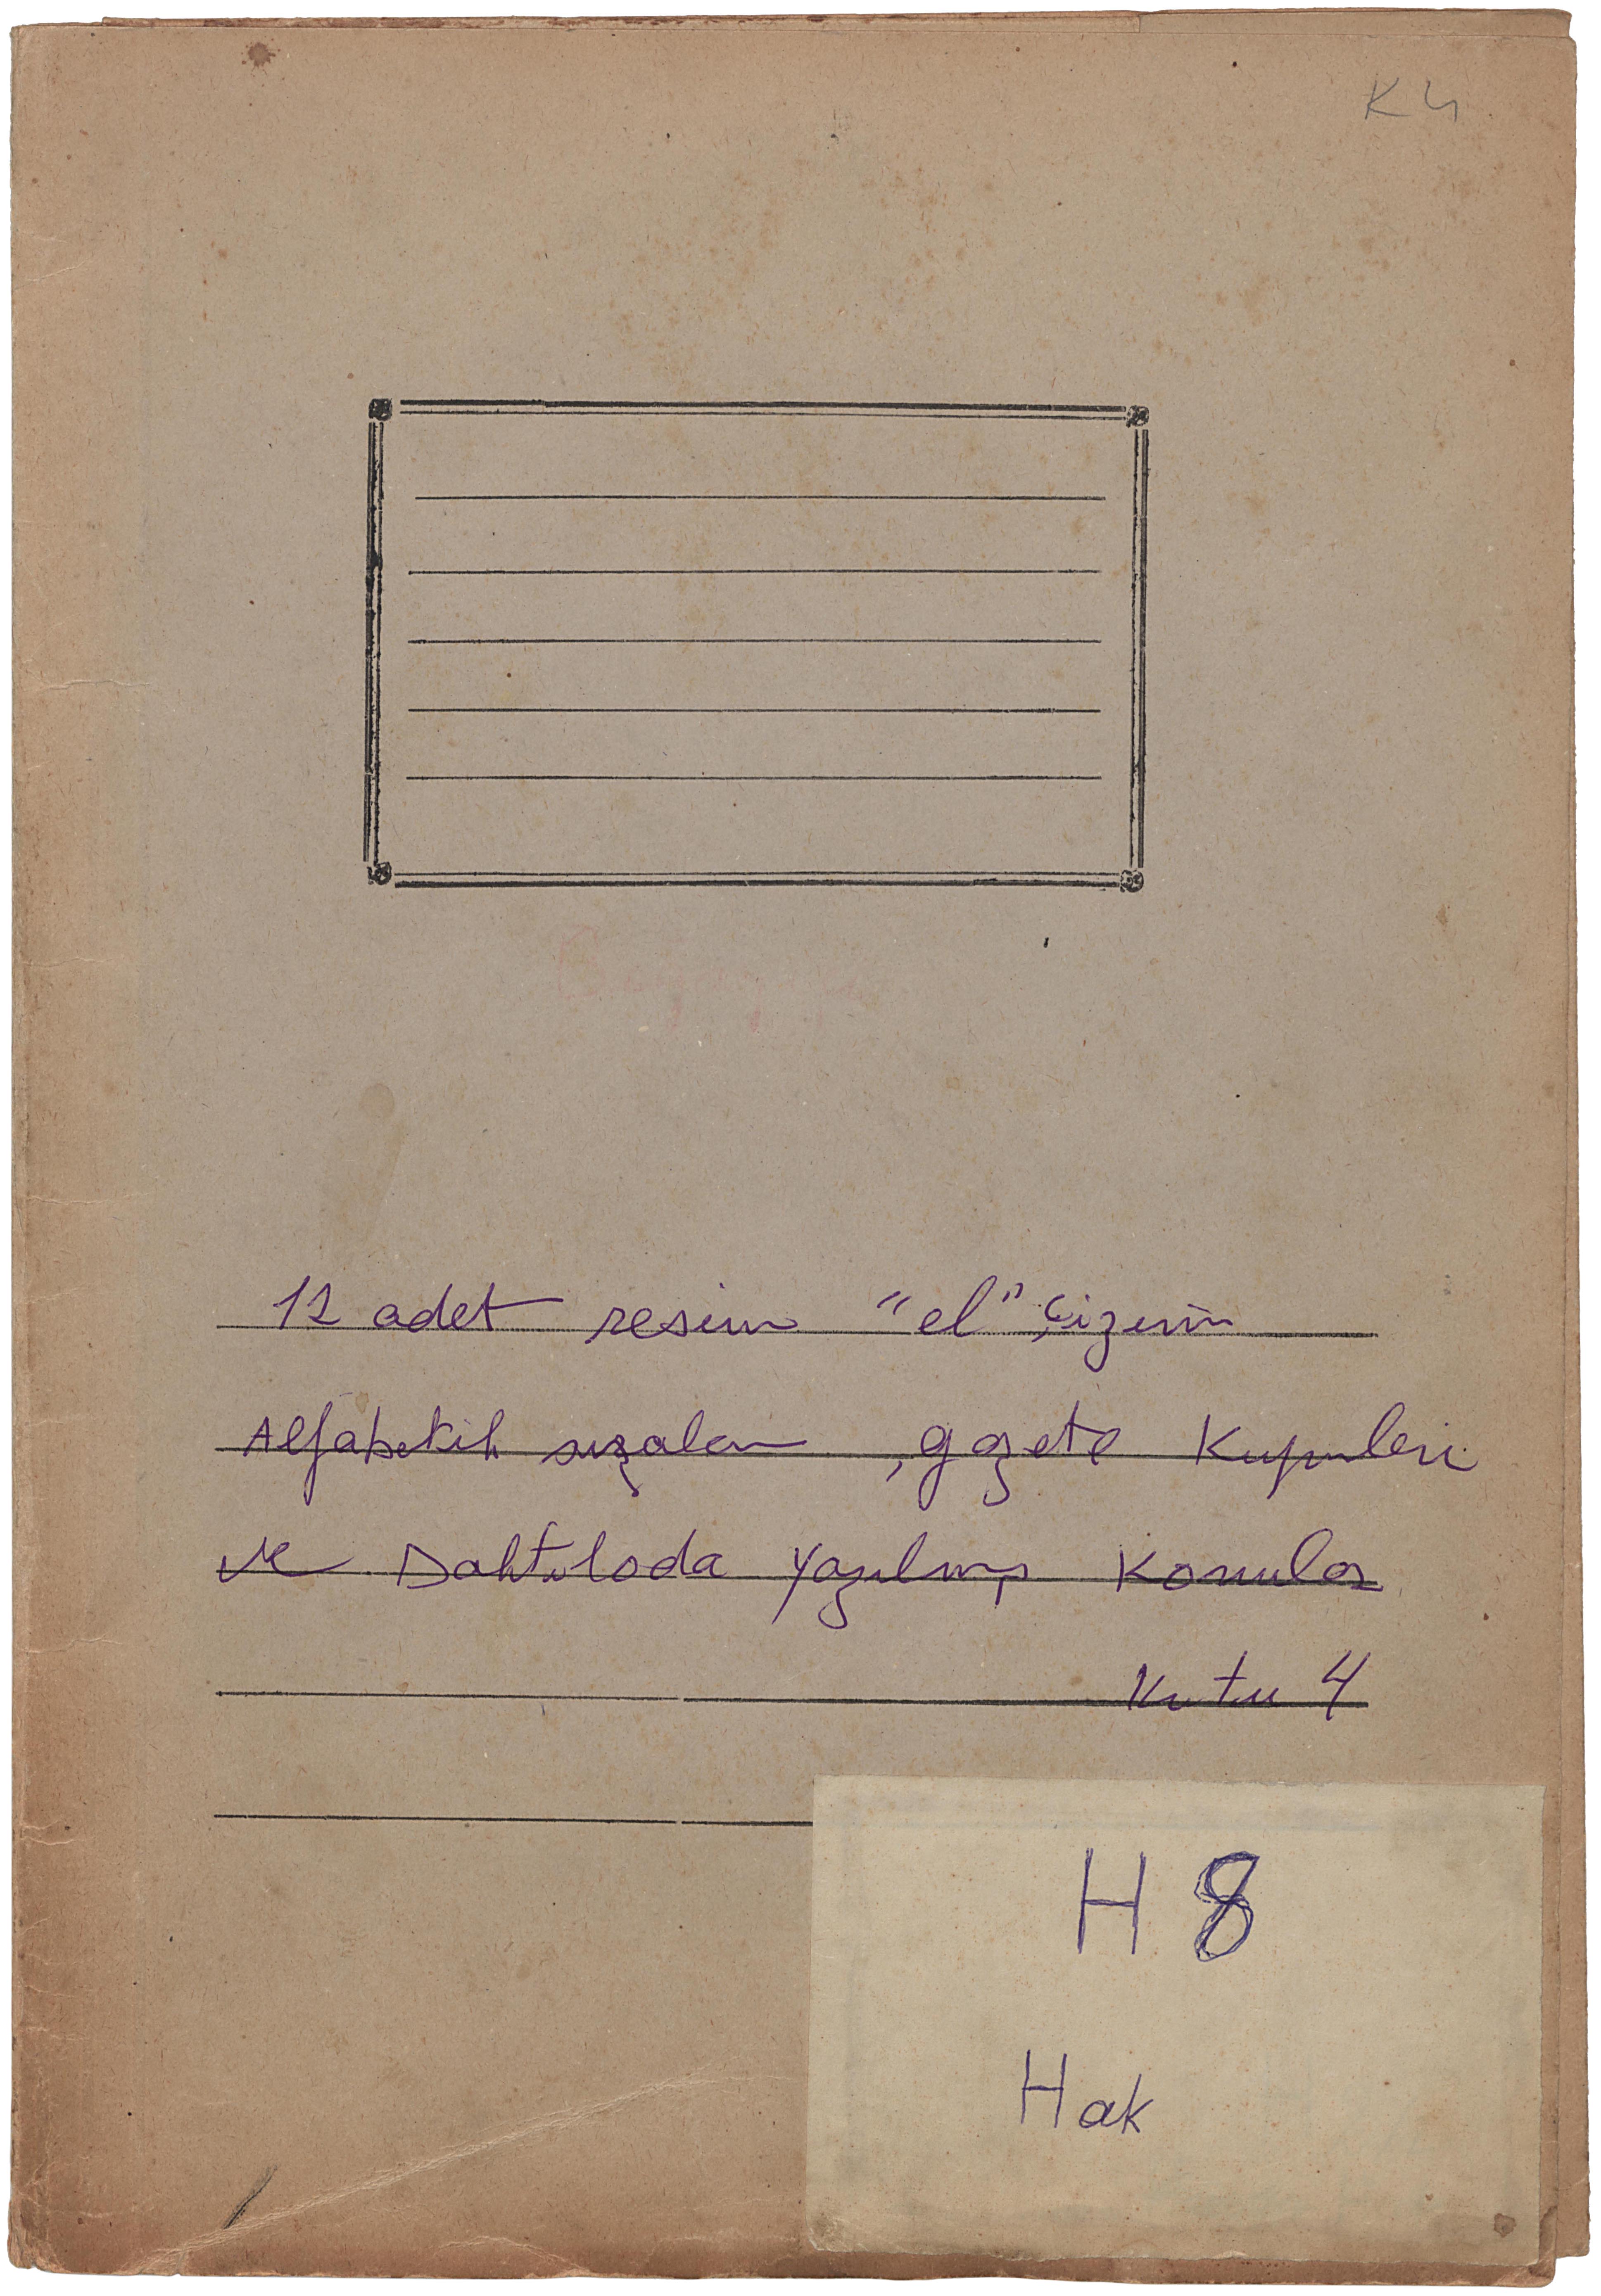 K4
12 adet resim "el" çizimi
Alfabetik sıralan, gazete Kupürleri
ve Daktiloda yazılmış Konular
Kutu 4
H 8
Hak